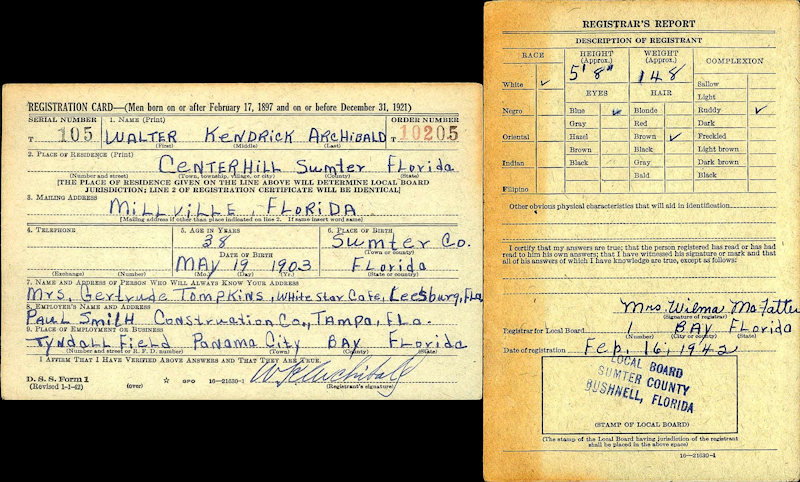 REGISTRATION CARD—(Men born on or after February 17, 1897 and on or before December 31, 1921)
SERIAL NUMBER 1. NAME (Print) ORDER NUMBER
T 105 WALTER KENDRICK ARCHIBALD T 10205
(First) (Middle) (Last)
2. PLACE OF RESIDENCE (Print)
CENTERHILL Sumter FLorida
(Number and street) (Town, township, village, or city) (County) (State)
[THE PLACE OF RESIDENCE GIVEN ON THE LINE ABOVE WILL DETERMINE LOCAL BOARD
JURISDICTION; LINE 2 OF REGISTRATION CERTIFICATE WILL BE IDENTICAL]
3. MAILING ADDRESS
MILLVILLE, FLORIDA
[Mailing address if other than place indicated on line 2. If same insert word same]
4. TELEPHONE 5. AGE IN YEARS 6. PLACE OF BIRTH
38 Sumter Co.
DATE OF BIRTH (Town or county)
MAY 19 1903 FLorida
(Exchange) (Number) (Mo.) (Day) (Yr.) (State or country)
7. NAME AND ADDRESS OF PERSON WHO WILL ALWAYS KNOW YOUR ADDRESS
Mrs. Gertrude Tompkins, White Star Cafe, Leesburg, Fla
8. EMPLOYER'S NAME AND ADDRESS
PAUL SMITH Construction Co., TAMPA, FLa.
9. PLACE OF EMPLOYMENT OR BUSINESS
TYNDALL Field Panama City BAY FLorida
(Number and street or R. F. D. number) (Town) (County) (State)
I AFFIRM THAT I HAVE VERIFIED ABOVE ANSWERS AND THAT THEY ARE TRUE.
D. S. S. Form 1
(Revised 1-1-42) (over) ☆ GPO 16—21630-1 W K Archibald
(Registrant's signature)
REGISTRAR'S REPORT
DESCRIPTION OF REGISTRANT
RACE HEIGHT (Approx.) WEIGHT (Approx.) COMPLEXION
5' 8" 148
White ✓ EYES HAIR Sallow
Light
Negro Blue ✓ Blonde Ruddy ✓
Gray Red Dark
Oriental Hazel Brown ✓ Freckled
Brown Black Light brown
Indian Black Gray Dark brown
Bald Black
Filipino
Other obvious physical characteristics that will aid in identification
I certify that my answers are true; that the person registered has read or has had
read to him his own answers; that I have witnessed his signature or mark and that
all of his answers of which I have knowledge are true, except as follows:
Mrs. Wilma McFatter
(Signature of registrar)
Registrar for Local Board 1 BAY FLorida
(Number) (City or county) (State)
Date of registration Feb. 16, 1942
LOCAL BOARD
SUMTER COUNTY
BUSHNELL, FLORIDA
(STAMP OF LOCAL BOARD)
(The stamp of the Local Board having jurisdiction of the registrant
shall be placed in the above space)
16—21630-1